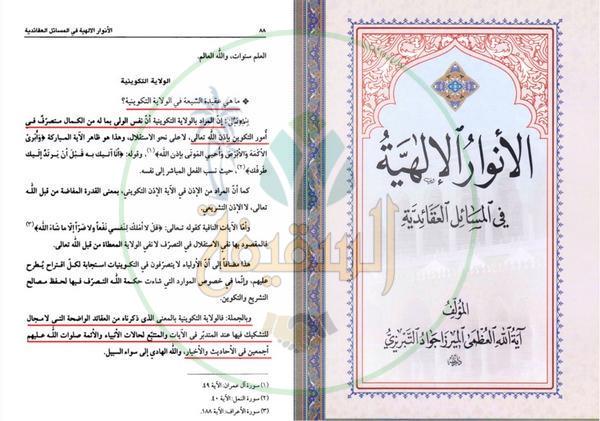 ٨٨
الأنوار الالهية في المسائل العقائدية
العلم سنوات، والله العالم.
الولاية التكوينية
ما هي عقيدة الشيعة في الولاية التكوينية؟
إن المراد بالولاية التكوينية أنّ نفس الولي بما له من الكمال متصرّف في
أمور التكوين بإذن الله تعالى، لا على نحو الاستقلال، وهذا هو ظاهر الآية المباركة ﴿وَأُبْرِئُ
الأَكْمَهَ وَالأَبْرَصَ وَأُحْيِي المَوْتَى بِإِذْنِ اللهِ﴾(١)، وقوله: ﴿أَنَا آتِيكَ بِهِ قَبْلَ أَنْ يَرْتَدَّ إِلَيْكَ
طَرْفُكَ﴾(٢)، حيث نسب الفعل المباشر إلى نفسه.
كما أنّ المراد من الإذن في الآية الإذن التكويني، بمعنى القدرة المفاضة من قبل الله
تعالى، لا الإذن التشريعي.
وأمّا الآيات النافية كقوله تعالى: ﴿قُلْ لا أَمْلِكُ لِنَفْسِي نَفْعاً وَلا ضَرّاً إِلَّا مَا شَاءَ اللهُ﴾(٣)
فالمقصود بها نفي الاستقلال في التصرف لا نفي الولاية المعطاة من قبل الله تعالى.
هذا مضافاً إلى أنّ الأولياء لا يتصرّفون في التكوينيات استجابة لكلّ اقتراح يُطرح
عليهم، وإنّما في خصوص الموارد التي شاءت حكمة الله التصرف فيها لحفظ مصالح
التشريع والتكوين.
وبالجملة: فالولاية التكوينية بالمعنى الذي ذكرناه من العقائد الواضحة التي لا مجال
للتشكيك فيها عند المتدبّر في الآيات والمتتبّع لحالات الأنبياء والأئمة صلوات الله عليهم
أجمعين في الأحاديث والأخبار، والله الهادي إلى سواء السبيل.
(١) سورة آل عمران: الآية ٤٩.
(٢) سورة النمل: الآية ٤٠.
(٣) سورة الأعراف: الآية ١٨٨.
الأنوار الإلهية
في المسائل العقائدية
المؤلف
آية الله العظمى الميرزا جواد التبريزي
السقيفة